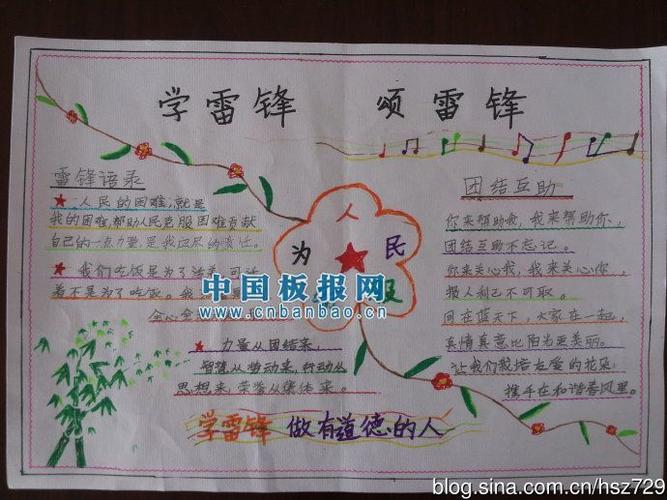 学雷锋 颂雷锋
雷锋语录
★人民的困难,就是
我的困难,帮助人民克服困难贡献
自己的一点力量,是我应尽的责任。
★我们吃饭是为了活着,可活
着不是为了吃饭。我
全心全
★力量从团结来,
智慧从劳动来,行动从
思想来,荣誉从集体来。
人
为 民
服
中国板报网
www.cnbanbao.cn
团结互助
你来帮助我,我来帮助你,
团结互助不忘记。
你来关心我,我来关心你,
损人利己不可取。
同在蓝天下,大家在一起,
真情真意比阳光更美丽。
让我们栽培友爱的花朵,
携手在和谐春风里。
学雷锋 做有道德的人
blog.sina.com.cn/hsz729